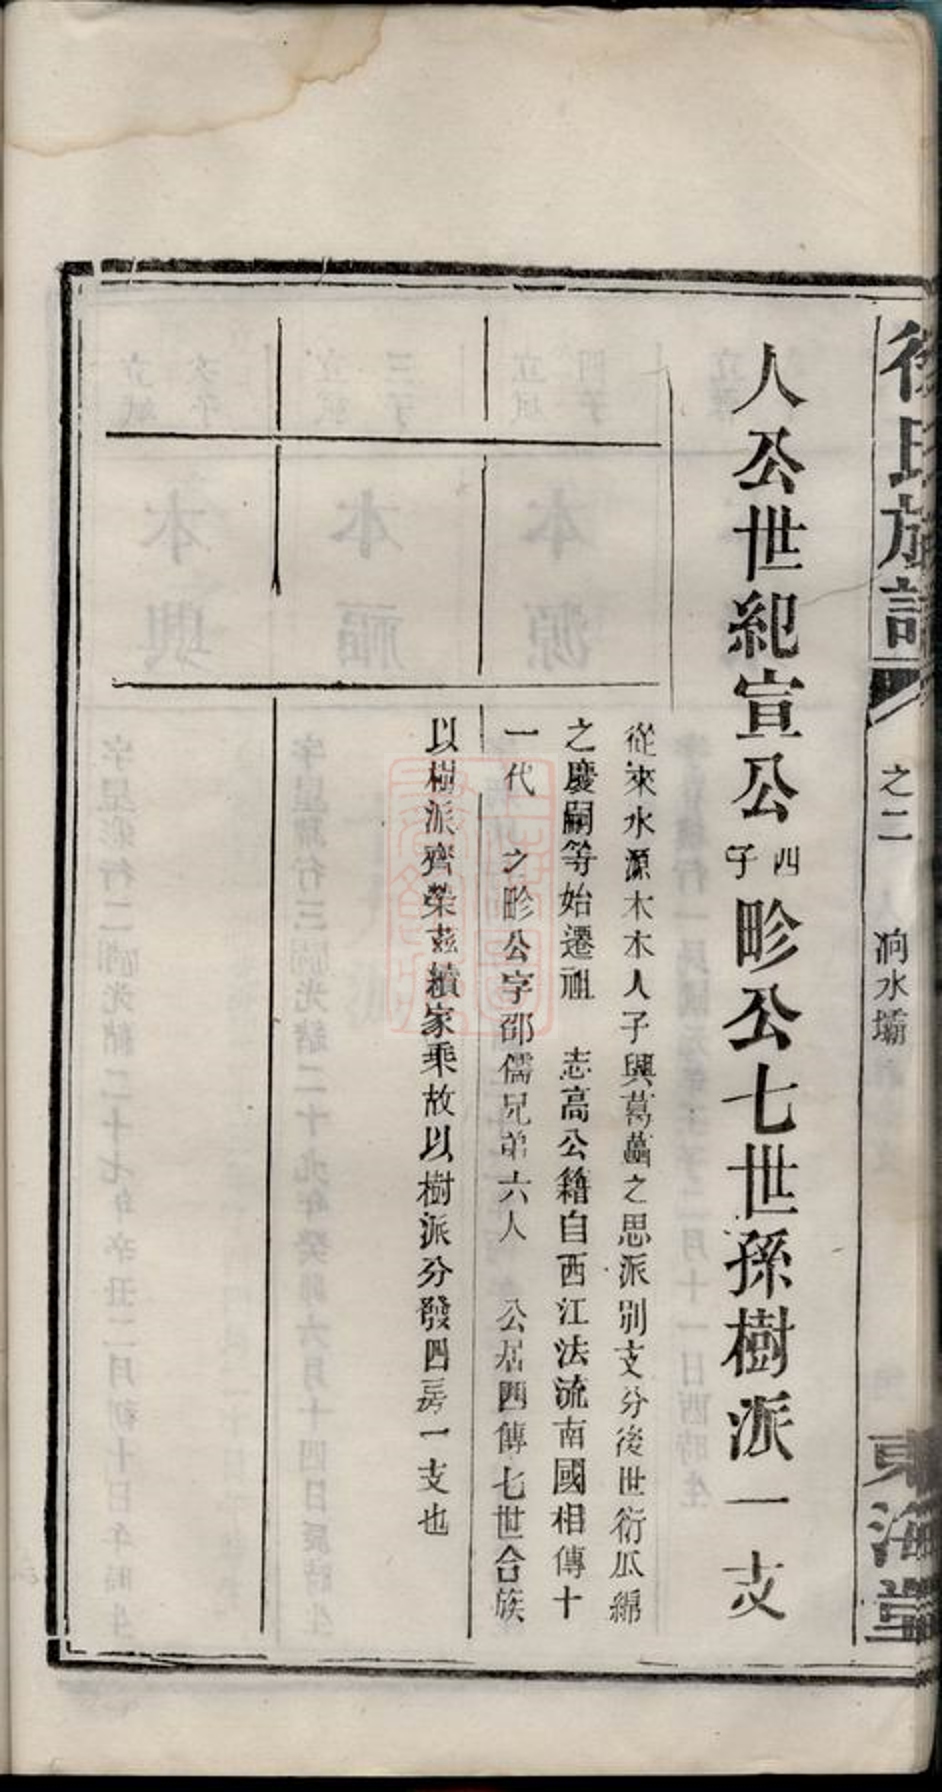 徐氏族譜
之二
洞水壩
東海堂
人公世紀宣公四子畛公七世孫樹派一支
從來水源木木人子興葛藟之思派別支分後世衍瓜綿
之慶嗣等始遷祖 志高公籍自西江法流南國相傳十
一代 之畛公字邵儒兄弟六人 公居四傳七世合族
以樹派齊榮茲續家乘故以樹派分發四房一支也